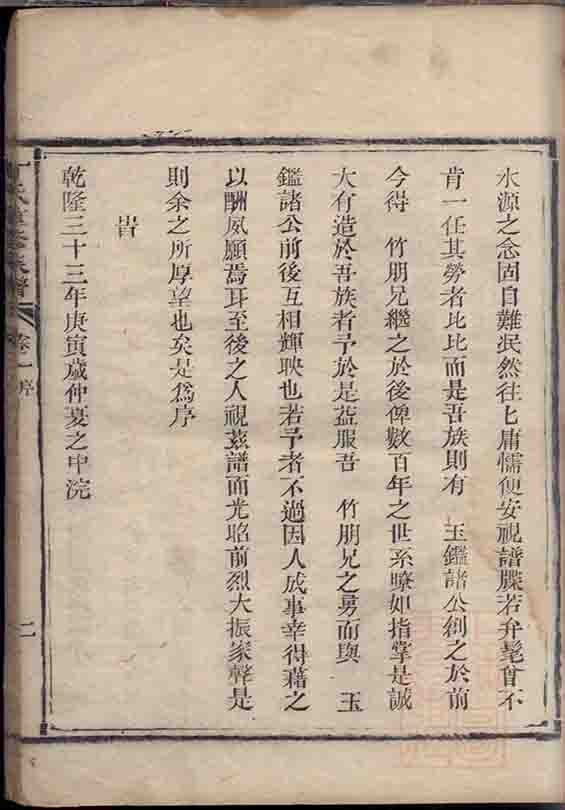 水源之念固自難泯然往匕庸懦便安視譜牒若弁髦曾不
肯一任其勞者比比而是吾族則有 玉鑑諸公創之於前
今得 竹朋兄繼之於後俾數百年之世系瞭如指掌是誠
大有造於吾族者予於是益服吾 竹朋兄之勇而與 玉
鑑諸公前後互相輝映也若予者不過因人成事幸得藉之
以酬夙願焉耳至後之人視茲譜而光昭前烈大振家聲是
則余之所厚望也矣是為序
旹
乾隆三十三年庚寅歲仲夏之中浣
氏 族譜
卷一 序
二